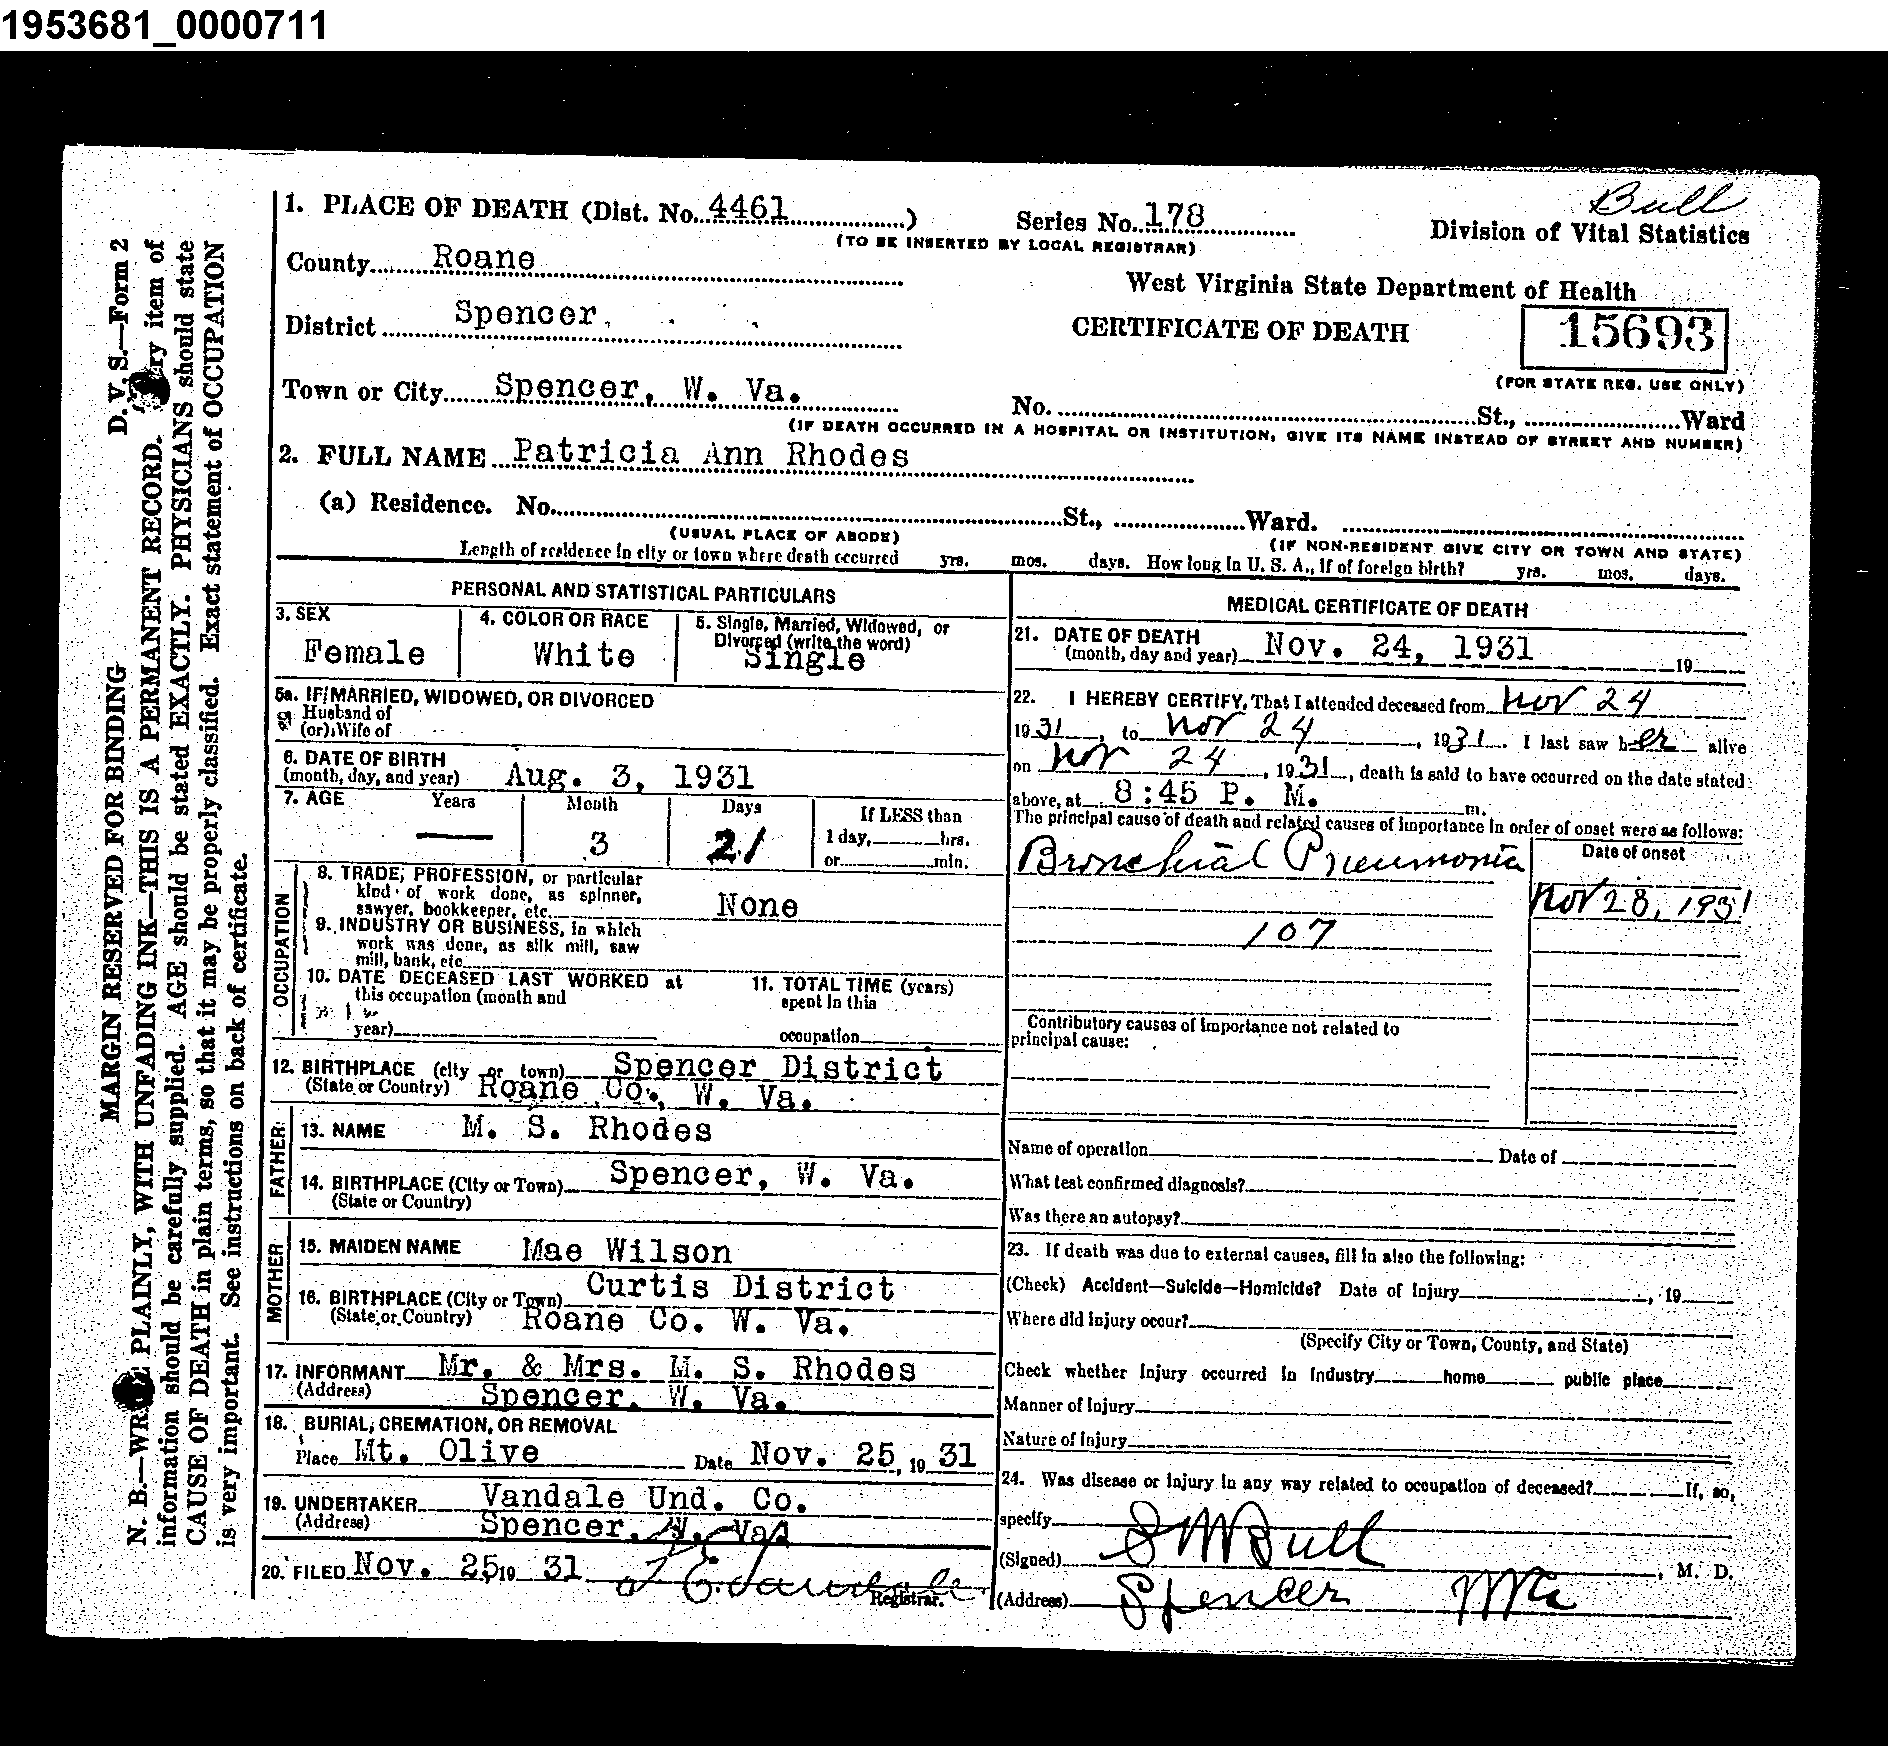 1953681_0000711
Bull
1. PLACE OF DEATH (Dist. No. 4461 )
Series No. 178
(TO BE INSERTED BY LOCAL REGISTRAR)
Division of Vital Statistics
County Roane
West Virginia State Department of Health
District Spencer,
CERTIFICATE OF DEATH
15693
(FOR STATE REG. USE ONLY)
Town or City Spencer, W. Va.
No. St., Ward
(IF DEATH OCCURRED IN A HOSPITAL OR INSTITUTION, GIVE ITS NAME INSTEAD OF STREET AND NUMBER)
2. FULL NAME Patricia Ann Rhodes
(a) Residence. No. St., Ward.
(USUAL PLACE OF ABODE)
(IF NON-RESIDENT GIVE CITY OR TOWN AND STATE)
Length of residence in city or town where death occurred yrs. mos. days. How long in U. S. A., if of foreign birth? yrs. mos. days.
PERSONAL AND STATISTICAL PARTICULARS
3. SEX
Female
4. COLOR OR RACE
White
5. Single, Married, Widowed, or
Divorced (write the word)
Single
5a. IF MARRIED, WIDOWED, OR DIVORCED
Husband of
(or) Wife of
6. DATE OF BIRTH
(month, day, and year) Aug. 3, 1931
7. AGE Years Month Days If LESS than
1 day, hrs.
or min.
— 3 21
OCCUPATION
8. TRADE, PROFESSION, or particular
kind of work done, as spinner,
sawyer, bookkeeper, etc. None
9. INDUSTRY OR BUSINESS, in which
work was done, as silk mill, saw
mill, bank, etc.
10. DATE DECEASED LAST WORKED at
this occupation (month and
year)
11. TOTAL TIME (years)
spent in this
occupation
12. BIRTHPLACE (city or town) Spencer District
(State or Country) Roane Co., W. Va.
FATHER
13. NAME M. S. Rhodes
14. BIRTHPLACE (City or Town) Spencer, W. Va.
(State or Country)
MOTHER
15. MAIDEN NAME Mae Wilson
16. BIRTHPLACE (City or Town) Curtis District
(State or Country) Roane Co. W. Va.
17. INFORMANT Mr. & Mrs. M. S. Rhodes
(Address) Spencer, W. Va.
18. BURIAL, CREMATION, OR REMOVAL
Place Mt. Olive Date Nov. 25, 19 31
19. UNDERTAKER Vandale Und. Co.
(Address) Spencer, W. Va.
20. FILED Nov. 25, 19 31
Registrar.
MEDICAL CERTIFICATE OF DEATH
21. DATE OF DEATH
(month, day and year) Nov. 24, 1931 19
22. I HEREBY CERTIFY, That I attended deceased from Nov 24
1931, to Nov 24, 1931. I last saw her alive
on Nov 24, 1931, death is said to have occurred on the date stated
above, at 8:45 P. M. m.
The principal cause of death and related causes of importance in order of onset were as follows:
Date of onset
Bronchial Pneumonia
Nov 28, 1931
107
Contributory causes of importance not related to
principal cause:
Name of operation Date of
What test confirmed diagnosis?
Was there an autopsy?
23. If death was due to external causes, fill in also the following:
(Check) Accident—Suicide—Homicide? Date of injury , 19
Where did injury occur?
(Specify City or Town, County, and State)
Check whether injury occurred in industry home public place
Manner of injury
Nature of injury
24. Was disease or injury in any way related to occupation of deceased? If, so,
specify
(Signed) S M Bull , M. D.
(Address) Spencer WVa
D. V. S.—Form 2
MARGIN RESERVED FOR BINDING
N. B.—WRITE PLAINLY, WITH UNFADING INK—THIS IS A PERMANENT RECORD. Every item of
information should be carefully supplied. AGE should be stated EXACTLY. PHYSICIANS should state
CAUSE OF DEATH in plain terms, so that it may be properly classified. Exact statement of OCCUPATION
is very important. See instructions on back of certificate.